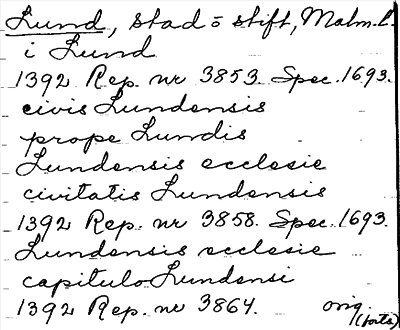 Lund, stad o stift, Malm. l.
i Lund
1392 Rep. nr 3853. Spec. 1693.
civis Lundensis
prope Lundis
Lundensis ecclesie
civitatis Lundensis
1392 Rep. nr 3858. Spec. 1693.
Lundensis ecclesie
capitulo Lundensi
1392 Rep. nr 3864. orig.
(forts)